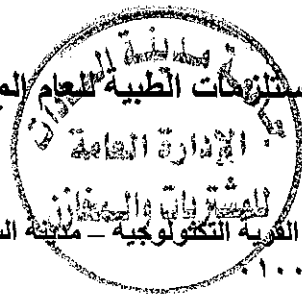 مدينة السادات
مستلزمات الطبية للعام الم
الإدارة العامة
للمشتريات والمخازن
القرية التكنولوجية – مدينة ال
٠١٠٠